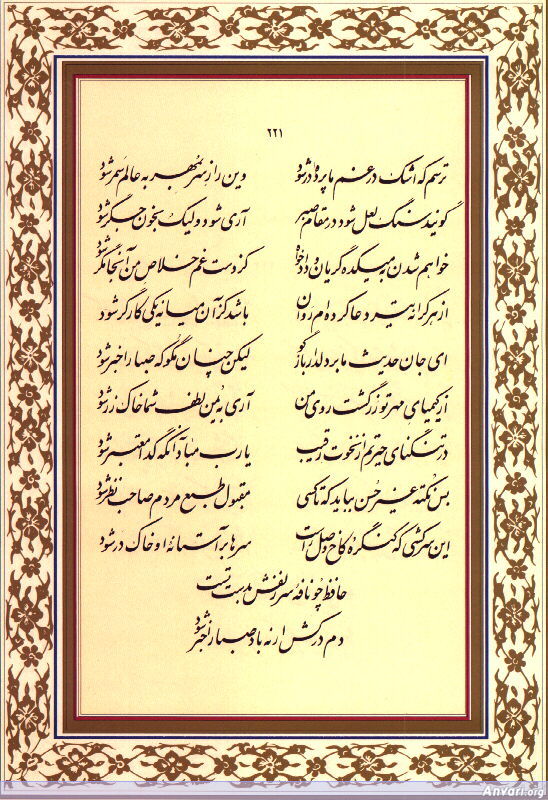 ۲۲۱
ترسم که اشک در غم ما پرده در شود وین راز سر بمهر به عالم سمر شود
گویند سنگ لعل شود در مقام صبر آری شود ولیک بخون جگر شود
خواهم شدن به میکده گریان و دادخواه کز دست غم خلاص من آنجا مگر شود
از هر کرانه تیر دعا کرده ام روان باشد کز آن میانه یکی کارگر شود
ای جان حدیث ما بر دلدار بازگو لیکن چنان مگو که صبا را خبر شود
از کیمیای مهر تو زر گشت روی من آری به یمن لطف شما خاک زر شود
در تنگنای حیرتم از نخوت رقیب یارب مباد آنکه گدا معتبر شود
بس نکته غیر حسن بباید که تا کسی مقبول طبع مردم صاحب نظر شود
این سرکشی که کنگره کاخ وصل راست سرها بر آستانه او خاک در شود
حافظ چو نافه سر زلفش بدست تست
دم درکش ار نه باد صبا را خبر شود
Anvari.org